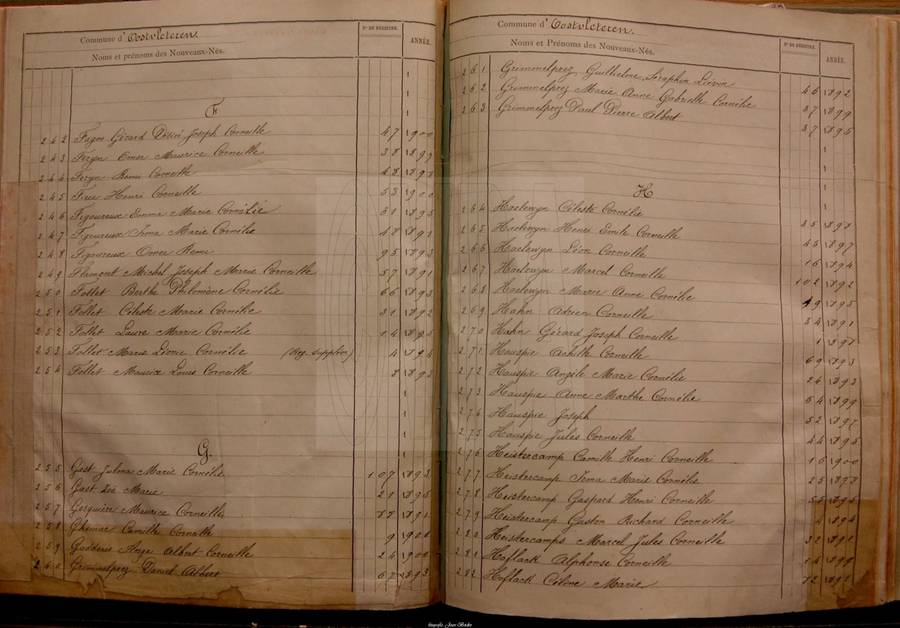 Commune d' Oostvleteren.
Noms et prénoms des Nouveaux-Nés.
N° DE REGISTRE.
ANNÉE.
F
242 Fagoo Gérard Désiré Joseph Corneille 47 1900
243 Feryn Omer Maurice Corneille 38 1899
244 Feryn Remi Corneille 48 1898
245 Henri Corneille 53 1900
246 Figoureux Emma Marie Cornélie 51 1895
247 Figoureux Irma Marie Cornélie 48 1891
248 Figoureux Omer Remi 95 1893
249 Flamont Michel Joseph Marie Corneille 57 1891
250 Follet Berthe Philomène Cornélie 66 1893
251 Follet Céleste Marie Cornélie 31 1892
252 Follet Laure Marie Cornélie 14 1896
253 Follet Marie Léonie Cornélie (Reg. supplém) 4 1894
254 Follet Maurice Louis Corneille 1893
G
255 Gast Julma Marie Cornélie 107 1893
256 Gast Marie 21 1896
257 Maurice Corneille
258 Ghemar Camille Corneille 9 1900
259 Godderis Ange Albert Corneille 26 1900
260 Grimmelprez Daniel Albert 67 1893
Commune d' Oostvleteren.
Noms et Prénoms des Nouveaux-Nés.
N° DE REGISTRE.
ANNÉE.
261 Grimmelprez Guilhelme Seraphin Liévin 46 1892
262 Grimmelprez Marie Anne Gabrielle Cornélie 37 1899
263 Grimmelprez Paul Pierre Albert 37 1895
H
264 Haelewyn Céleste Cornélie
265 Haelewyn Henri Emile Corneille 45 1897
266 Haelewyn Léon Corneille 16 1894
267 Haelewyn Marcel Corneille 102 1892
268 Haelewyn Marie Anne Cornélie 49 1895
269 Hahn Adrien Corneille 54 1891
270 Hahn Gérard Joseph Corneille 1 1891
271 Hauspie Achille Corneille 69 1893
272 Hauspie Angèle Marie Cornélie 26 1893
273 Hauspie Anne Marthe Cornélie 64 1899
274 Hauspie Joseph 52 1897
275 Hauspie Jules Corneille 44 1895
276 Heistercamp Camille Henri Corneille 16 1900
277 Heistercamp Irma Marie Cornélie 25 1898
278 Heistercamp Gaspard Henri Corneille
279 Heistercamp Gaston Richard Corneille 1894
280 Heistercamps Marcel Jules Corneille 32 1891
281 Hoflack Alphonse Corneille 16 1899
282 Hoflack Céline Marie 12 1891